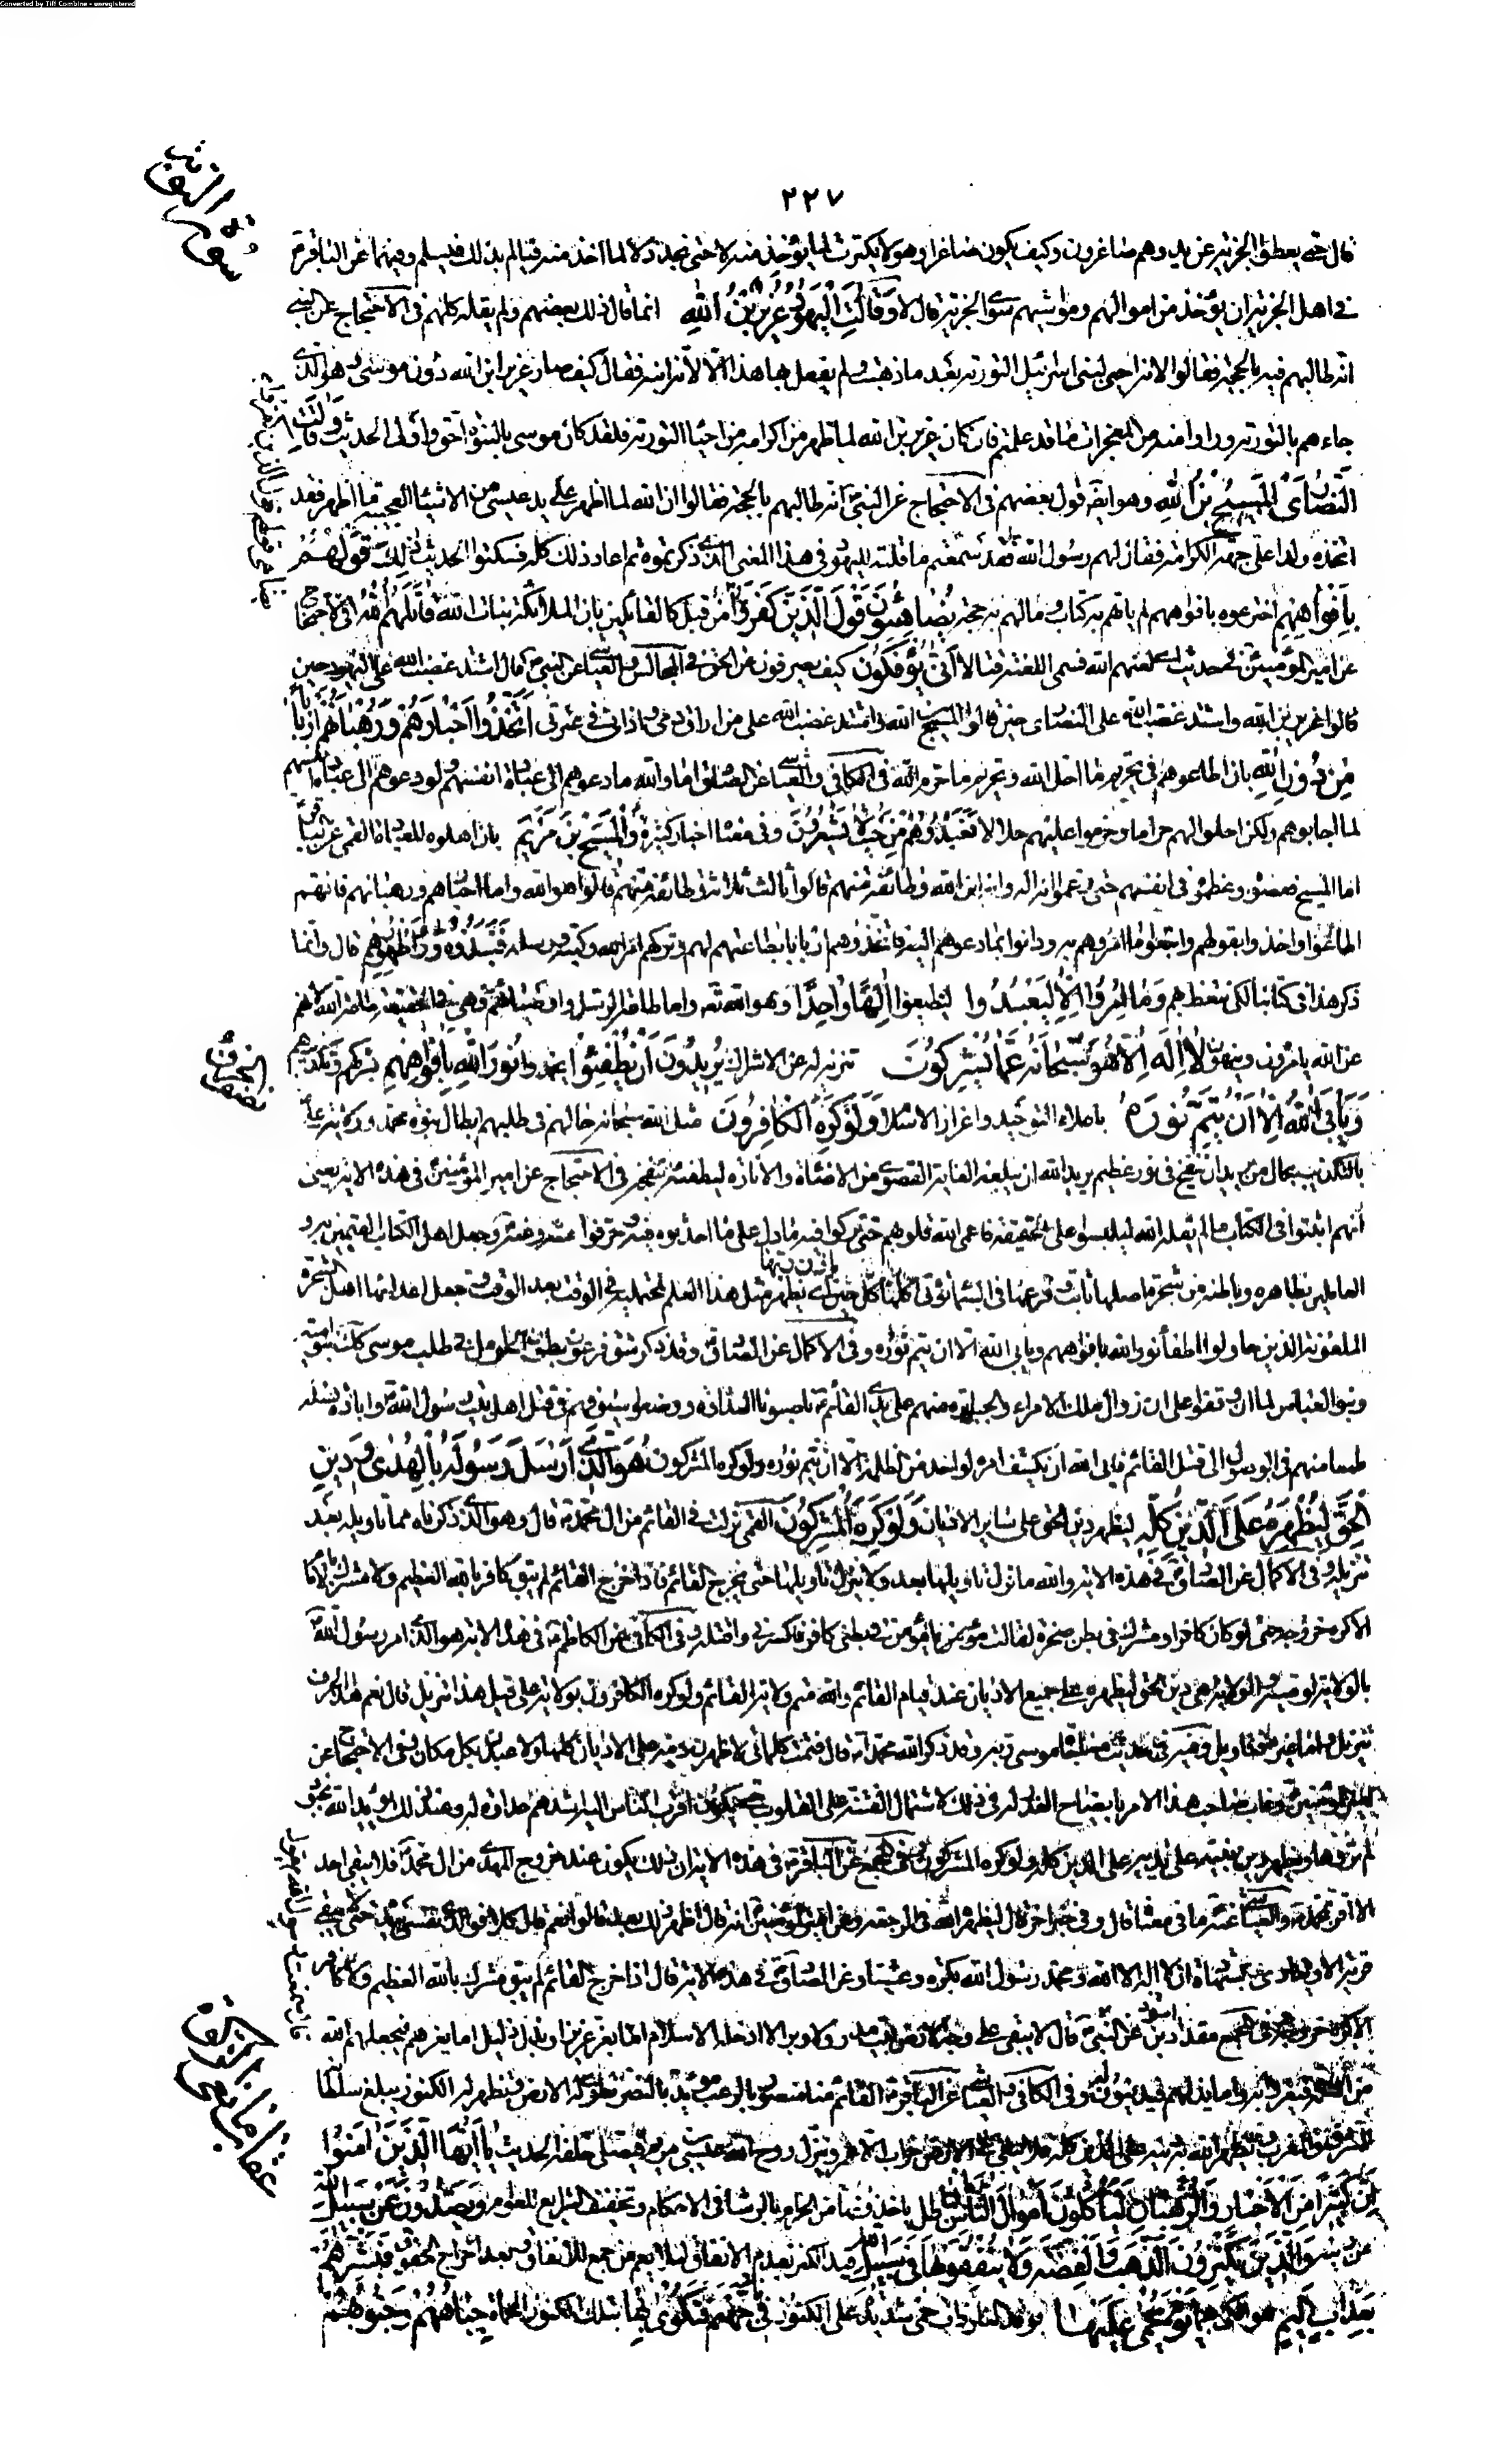 Converted by Tiff Combine - unregistered
٢٢٧
سورة التوبة
قال حتى يعطوا الجزية عن يد وهم صاغرون وكيف يكون صاغرا وهو لا يكترث لما يؤخذ منه لا حتى يجد ذلا لما اخذ منه فيألم بذلك فيسلم وفيهما عن الباقر
في اهل الجزية ان يؤخذ من اموالهم ومواشيهم سوى الجزية قال لا وَقَالَتِ الْيَهُودُ عُزَيْرٌ بْنُ اللهِ انما قال ذلك بعضهم ولم يقله كلهم في الاحتجاج عن النبي
انه طالبهم فيه بالحجة فقالوا لانه احيى لبني اسرائيل التورية بعد ما ذهبت ولم يفعل بها هذا الا لانه ابنه فقال كيف صار عزير ابن الله دون موسى وهو الذي
جاءهم بالتورية وراوا منه من المعجزات ما قد علمتم فان كان عزير بن الله لما ظهر من اكرامه من احياء التورية فلقد كان موسى بالبنوة احق واولى الحديث وَقَالَتِ
النَّصَارَى الْمَسِيحُ بْنُ اللهِ وهو ايضا قول بعضهم في الاحتجاج عن النبي انه طالبهم بالحجة فقالوا ان الله لما اظهر على يد عيسى من الاشياء العجيبة ما اظهر فقد
اتخذه ولدا على جهة الكرامة فقال لهم رسول الله فقد سمعتم ما قلته لليهود في هذا المعنى الذي ذكرتموه ثم اعاد ذلك كله فسكتوا الحديث ذَلِكَ قَوْلُهُمْ
بِأَفْوَاهِهِمْ اخترعوه بافواههم لم ياتهم به كتاب وما لهم به حجة يُضَاهِئُونَ قَوْلَ الَّذِينَ كَفَرُوا مِنْ قَبْلُ كالقائلين بان الملائكة بنات الله قَاتَلَهُمُ اللهُ في الاحتجاج
عن امير المؤمنين في حديث اي لعنهم الله فسمى اللعنة قتالا أَنَّى يُؤْفَكُونَ كيف يصرفون عن الحق في المجالس والعياشي عن النبي قال اشتد غضب الله على اليهود حين
قالوا عزير بن الله واشتد غضب الله على النصارى حين قالوا المسيح بن الله واشتد غضب الله على من اراق دمي واذاني في عترتي اتَّخَذُوا أَحْبَارَهُمْ وَرُهْبَانَهُمْ أَرْبَابًا
مِنْ دُونِ اللهِ بان اطاعوهم في تحريم ما احل الله وتحريم ما حرم الله في الكافي والعياشي عن الصادق اما والله ما دعوهم الى عبادة انفسهم ولو دعوهم الى عبادة انفسهم
لما اجابوهم ولكن احلوا لهم حراما وحرموا عليهم حلالا فعبدوهم من حيث لا يشعرون وفي معناه اخبار كثيرة وَالْمَسِيحَ بْنَ مَرْيَمَ بان اهلوه للعبادة القمي عن الباقر
اما المسيح فعصوه وعظموه في انفسهم حتى زعموا انه اله وانه ابن الله وطائفة منهم قالوا ثالث ثلاثة وطائفة منهم قالوا هو الله واما احبارهم ورهبانهم فانهم
اطاعوا واخذوا بقولهم واتبعوا ما امروهم به ودانوا بما دعوهم اليه فاتخذوهم اربابا بطاعتهم لهم وتركهم امر الله وكتبه ورسله فنبذوه وراء ظهورهم قال وانما
ذكر هذا في كتابنا لكي نتعظ بهم وَمَا أُمِرُوا إِلَّا لِيَعْبُدُوا ليطيعوا إِلَهًا وَاحِدًا وهو الله تعالى واما طاعة الرسل واوصيائهم فهي في الحقيقة طاعة الله لانهم
عن الله يامرون وينهون لَا إِلَهَ إِلَّا هُوَ سُبْحَانَهُ عَمَّا يُشْرِكُونَ تنزيه له عن الاشراك يُرِيدُونَ أَنْ يُطْفِئُوا يخمدوا نُورَ اللهِ بِأَفْوَاهِهِمْ بشركهم وتكذيبهم
وَيَأْبَى اللهُ إِلَّا أَنْ يُتِمَّ نُورَهُ باعلاء التوحيد واعزاز الاسلام وَلَوْ كَرِهَ الْكَافِرُونَ مثل الله سبحانه حالهم في طلبهم ابطال نبوة محمد وولاية علي
بالتكذيب بحال من يريد ان ينفخ في نور عظيم يريد الله ان يبلغه الغاية القصوى من الاضاءة والانارة ليطفئه بنفخه في الاحتجاج عن امير المؤمنين في هذه الاية يعني
انهم اثبتوا في الكتاب ما لم يقله الله ليلبسوا على الخليقة فاعمى الله قلوبهم حتى تركوا فيه ما دل على ما احدثوه فيه وحرفوا منه وجعل اهل الكتاب المقيمين به و
العاملين بظاهره وباطنه من شجرة اصلها ثابت وفرعها في السماء تؤتي اكلها كل حين باذن ربها اي يظهر مثل هذا العلم لمحتمليه في الوقت بعد الوقت وجعل اعداءها اهل الشجرة
الملعونة الذين حاولوا اطفاء نور الله بافواههم ويابى الله الا ان يتم نوره وفي الاكمال عن الصادق وقد ذكر شق فرعون بطون الحوامل في طلب موسى كذلك بنو امية
وبنو العباس لما ان وقفوا على ان زوال ملك الامراء والجبابرة منهم على يدي القائم ناصبونا العداوة ووضعوا سيوفهم في قتل اهل بيت رسول الله وابادة نسله
طمعا منهم في الوصول الى قتل القائم فابى الله ان يكشف امره لواحد من الظلمة الا ان يتم نوره ولو كره المشركون هُوَ الَّذِي أَرْسَلَ رَسُولَهُ بِالْهُدَى وَدِينِ
الْحَقِّ لِيُظْهِرَهُ عَلَى الدِّينِ كُلِّهِ ليظهر دين الحق على ساير الاديان وَلَوْ كَرِهَ الْمُشْرِكُونَ القمي نزلت في القائم من ال محمد قال وهو الذي ذكرناه مما تاويله بعد
تنزيله وفي الاكمال عن الصادق في هذه الاية والله ما نزل تاويلها بعد ولا ينزل تاويلها حتى يخرج القائم فاذا خرج القائم لم يبق كافر بالله العظيم ولا مشرك بالامام
الا كره خروجه حتى لو كان كافرا او مشرك في بطن صخرة لقالت يا مؤمن في بطني كافر فاكسرني واقتله وفي الكافي عن الكاظم في هذه الاية هو الذي امر رسول الله
بالولاية لوصيه والولاية هي دين الحق ليظهره على جميع الاديان عند قيام القائم والله متم ولاية القائم ولو كره الكافرون بولاية علي قيل هذا تنزيل قال نعم هذا الحرف
تنزيل واما غيره فتاويل وفيه في حديث مناجاة موسى ربه وقد ذكر الله محمدا قال فتمت كلماتي لاظهرن دينه على الاديان كلها ولاعبدن بكل مكان وفي الاحتجاج عن
امير المؤمنين وغاب صاحب هذا الامر بايضاح العذر له في ذلك لاشتمال الفتنة على القلوب حتى يكون اقرب الناس اليه اشدهم عداوة له وعند ذلك يؤيده الله بجنود
لم تروها ويظهر دين نبيه على يديه على الدين كله ولو كره المشركون وفي المجمع عن الباقر في هذه الاية ان ذلك يكون عند خروج المهدي من ال محمد فلا يبقى احد
الا اقر بمحمد والعياشي عنه ما في معناه قال وفي خبر اخر قال ليظهره الله في الرجعة وعن امير المؤمنين انه قال اظهر ذلك بعد قالوا نعم قال كلا فوالذي نفسي بيده حتى لا يبقى
قرية الا وينادى فيها بشهادة ان لا اله الا الله ومحمد رسول الله بكرة وعشيا وعن الصادق في هذه الاية قال اذا خرج القائم لم يبق مشرك بالله العظيم ولا كافر
الا كره خروجه وفي المجمع مقداد بن اسود عن النبي قال لا يبقى على وجه الارض بيت مدر ولا وبر الا ادخله الاسلام اما بعز عزيز او بذل ذليل اما يعزهم فيجعلهم الله
من اهله فيعزوا به واما يذلهم فيدينون له وفي الكافي والعياشي عن الباقر القائم منا منصور بالرعب مؤيد بالنصر تطوى له الارض وتظهر له الكنوز يبلغ سلطانه
المشرق والمغرب ويظهر الله به دينه على الدين كله فلا يبقى في الارض خراب الا عمر وينزل روح الله عيسى بن مريم فيصلي خلفه الحديث يَا أَيُّهَا الَّذِينَ آمَنُوا
إِنَّ كَثِيرًا مِنَ الْأَحْبَارِ وَالرُّهْبَانِ لَيَأْكُلُونَ أَمْوَالَ النَّاسِ بِالْبَاطِلِ ياخذونها من الحرام بالرشا في الاحكام وتخفيف الشرايع للعوام وَيَصُدُّونَ عَنْ سَبِيلِ اللهِ
عن دينه وَالَّذِينَ يَكْنِزُونَ الذَّهَبَ وَالْفِضَّةَ وَلَا يُنْفِقُونَهَا فِي سَبِيلِ اللهِ قيد الكنز بعدم الانفاق لئلا يعم من جمع للانفاق وبعد اخراج الحقوق فَبَشِّرْهُمْ
بِعَذَابٍ أَلِيمٍ هو الكي بهما يَوْمَ يُحْمَى عَلَيْهَا يوقد النار ذات حمى شديد على الكنوز فِي نَارِ جَهَنَّمَ فَتُكْوَى بِهَا بتلك الكنوز المحماة جِبَاهُهُمْ وَجُنُوبُهُمْ